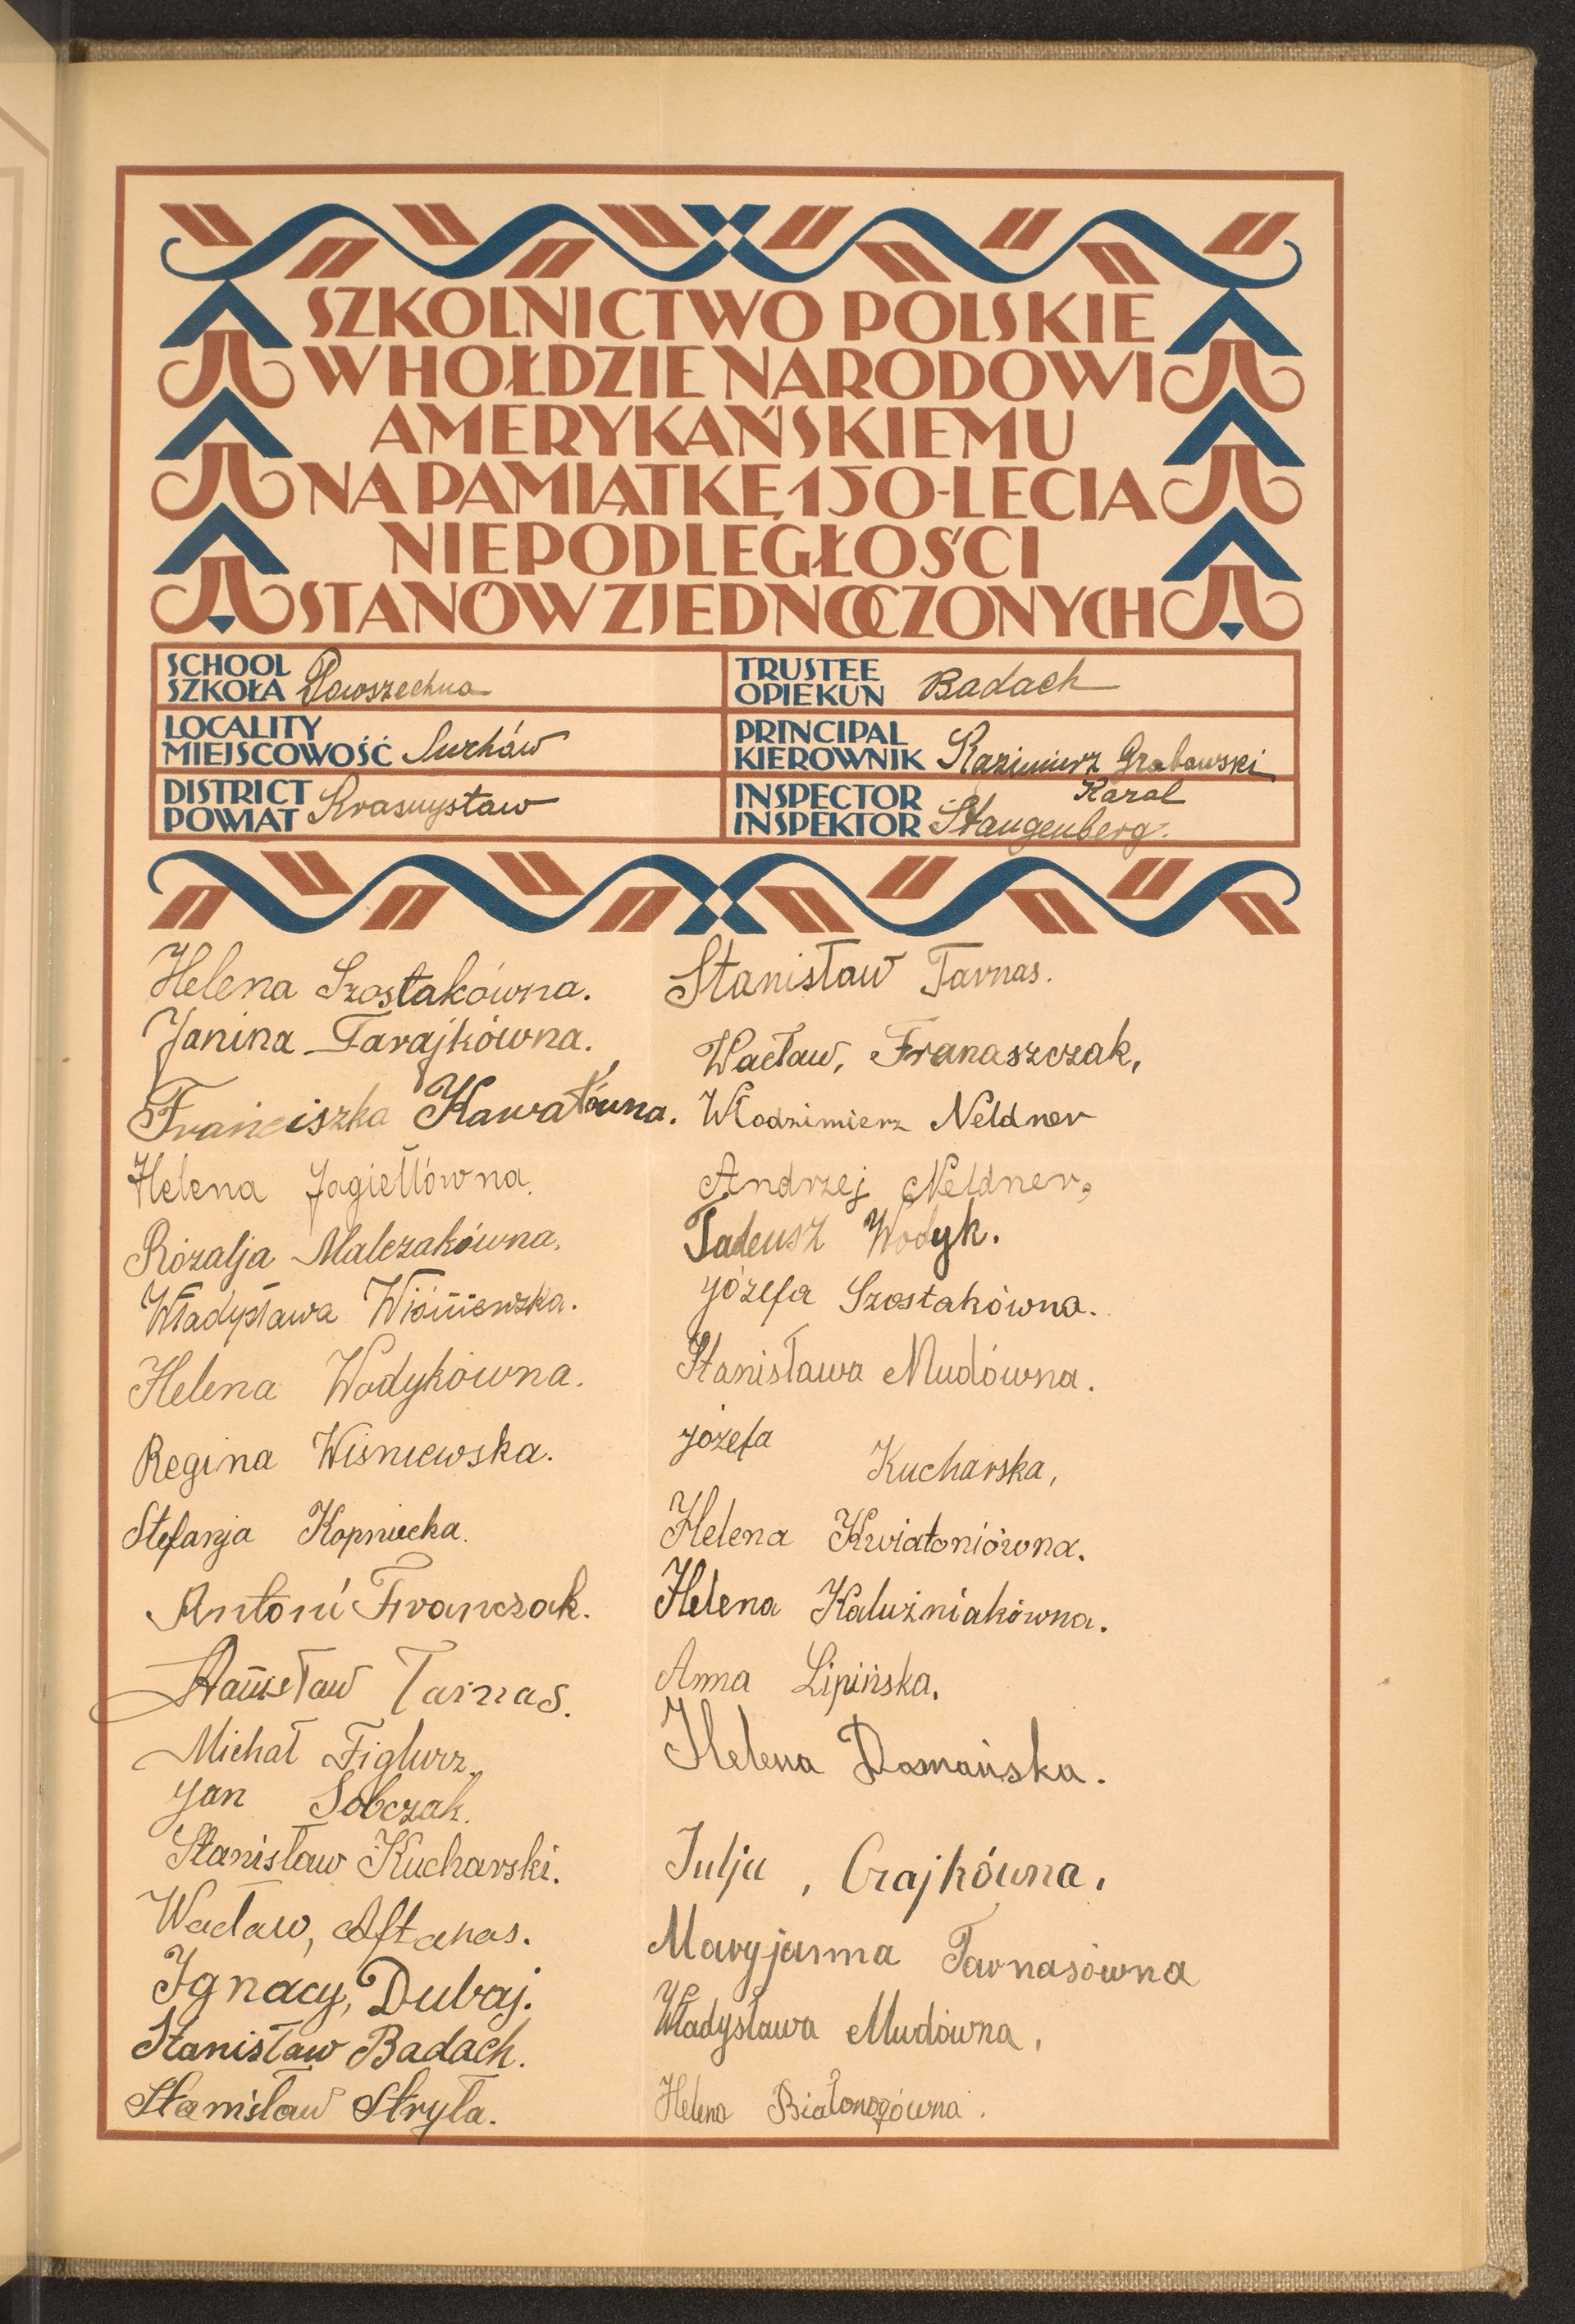 SZKOLNICTWO POLSKIE
W HOŁDZIE NARODOWI
AMERYKAŃSKIEMU
NA PAMIĄTKĘ 150-LECIA
NIEPODLEGŁOŚCI
STANÓW ZJEDNOCZONYCH
SCHOOL
SZKOŁA Powszechna
TRUSTEE
OPIEKUN Badach
LOCALITY
MIEJSCOWOŚĆ Surhów
PRINCIPAL
KIEROWNIK Kazimierz Grabowski
DISTRICT
POWIAT Krasnystaw
INSPECTOR Karol
INSPEKTOR Stangenberg.
Helena Szostakówna.
Janina Tarajkówna.
Franciszka Kawałówna.
Helena Jagiełłówna.
Rozalja Malczakówna.
Władysława Wiśniewska.
Helena Wodykówna.
Regina Wiśniewska.
Stefanja Kopniecka.
Antoni Franczak.
Stanisław Tarnas.
Michał Figlurz.
Jan Sobczak.
Stanisław Kucharski.
Wacław, Aftanas.
Ignacy, Dubaj.
Stanisław Badach.
Stanisław Stryła.
Stanisław Tarnas.
Wacław, Franaszczak,
Włodzimierz Neldner
Andrzej Neldner,
Tadeusz Wodyk.
Józefa Szostakówna.
Stanisława Mudówna.
Józefa Kucharska,
Helena Kwiatoniówna.
Helena Kaluźniakówna.
Anna Lipińska.
Helena Domańska.
Julja, Czajkówna.
Maryjanna Tarnasówna
Władysława Mudówna,
Helena Białonogówna.